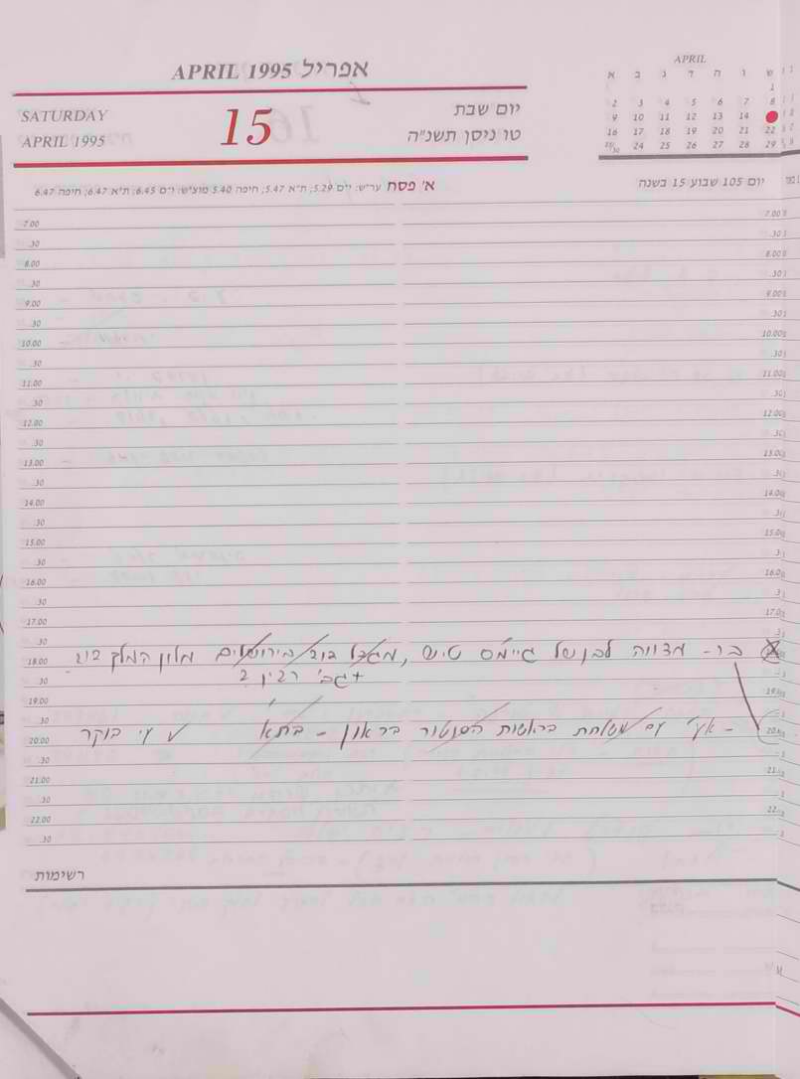 APRIL 1995 אפריל
SATURDAY
APRIL 1995
15
יום שבת
טו ניסן תשנ"ה
APRIL
א ב ג ד ה ו ש
1
2 3 4 5 6 7 8
9 10 11 12 13 14
16 17 18 19 20 21 22
23/30 24 25 26 27 28 29
יום 105 שבוע 15 בשנה
א' פסח ער"ש: י"ם 5.29; ת"א 5.47; חיפה 5.40 מוצ"ש: י"ם 6.45; ת"א 6.47; חיפה 6.47
7.00
.30
8.00
.30
9.00
.30
10.00
.30
11.00
.30
12.00
.30
13.00
.30
14.00
.30
15.00
.30
16.00
.30
17.00
.30
בר - מצווה לבן של ג'יימס טיש, מגדל דוד בירושלים מלון המלך דוד
18.00
+ גב' רבין ?
.30
19.00
.30
- אע' עם משלחת בראשות הסנטור בראון - בת"א ע"י בוקר
20.00
.30
21.00
.30
22.00
.30
רשימות